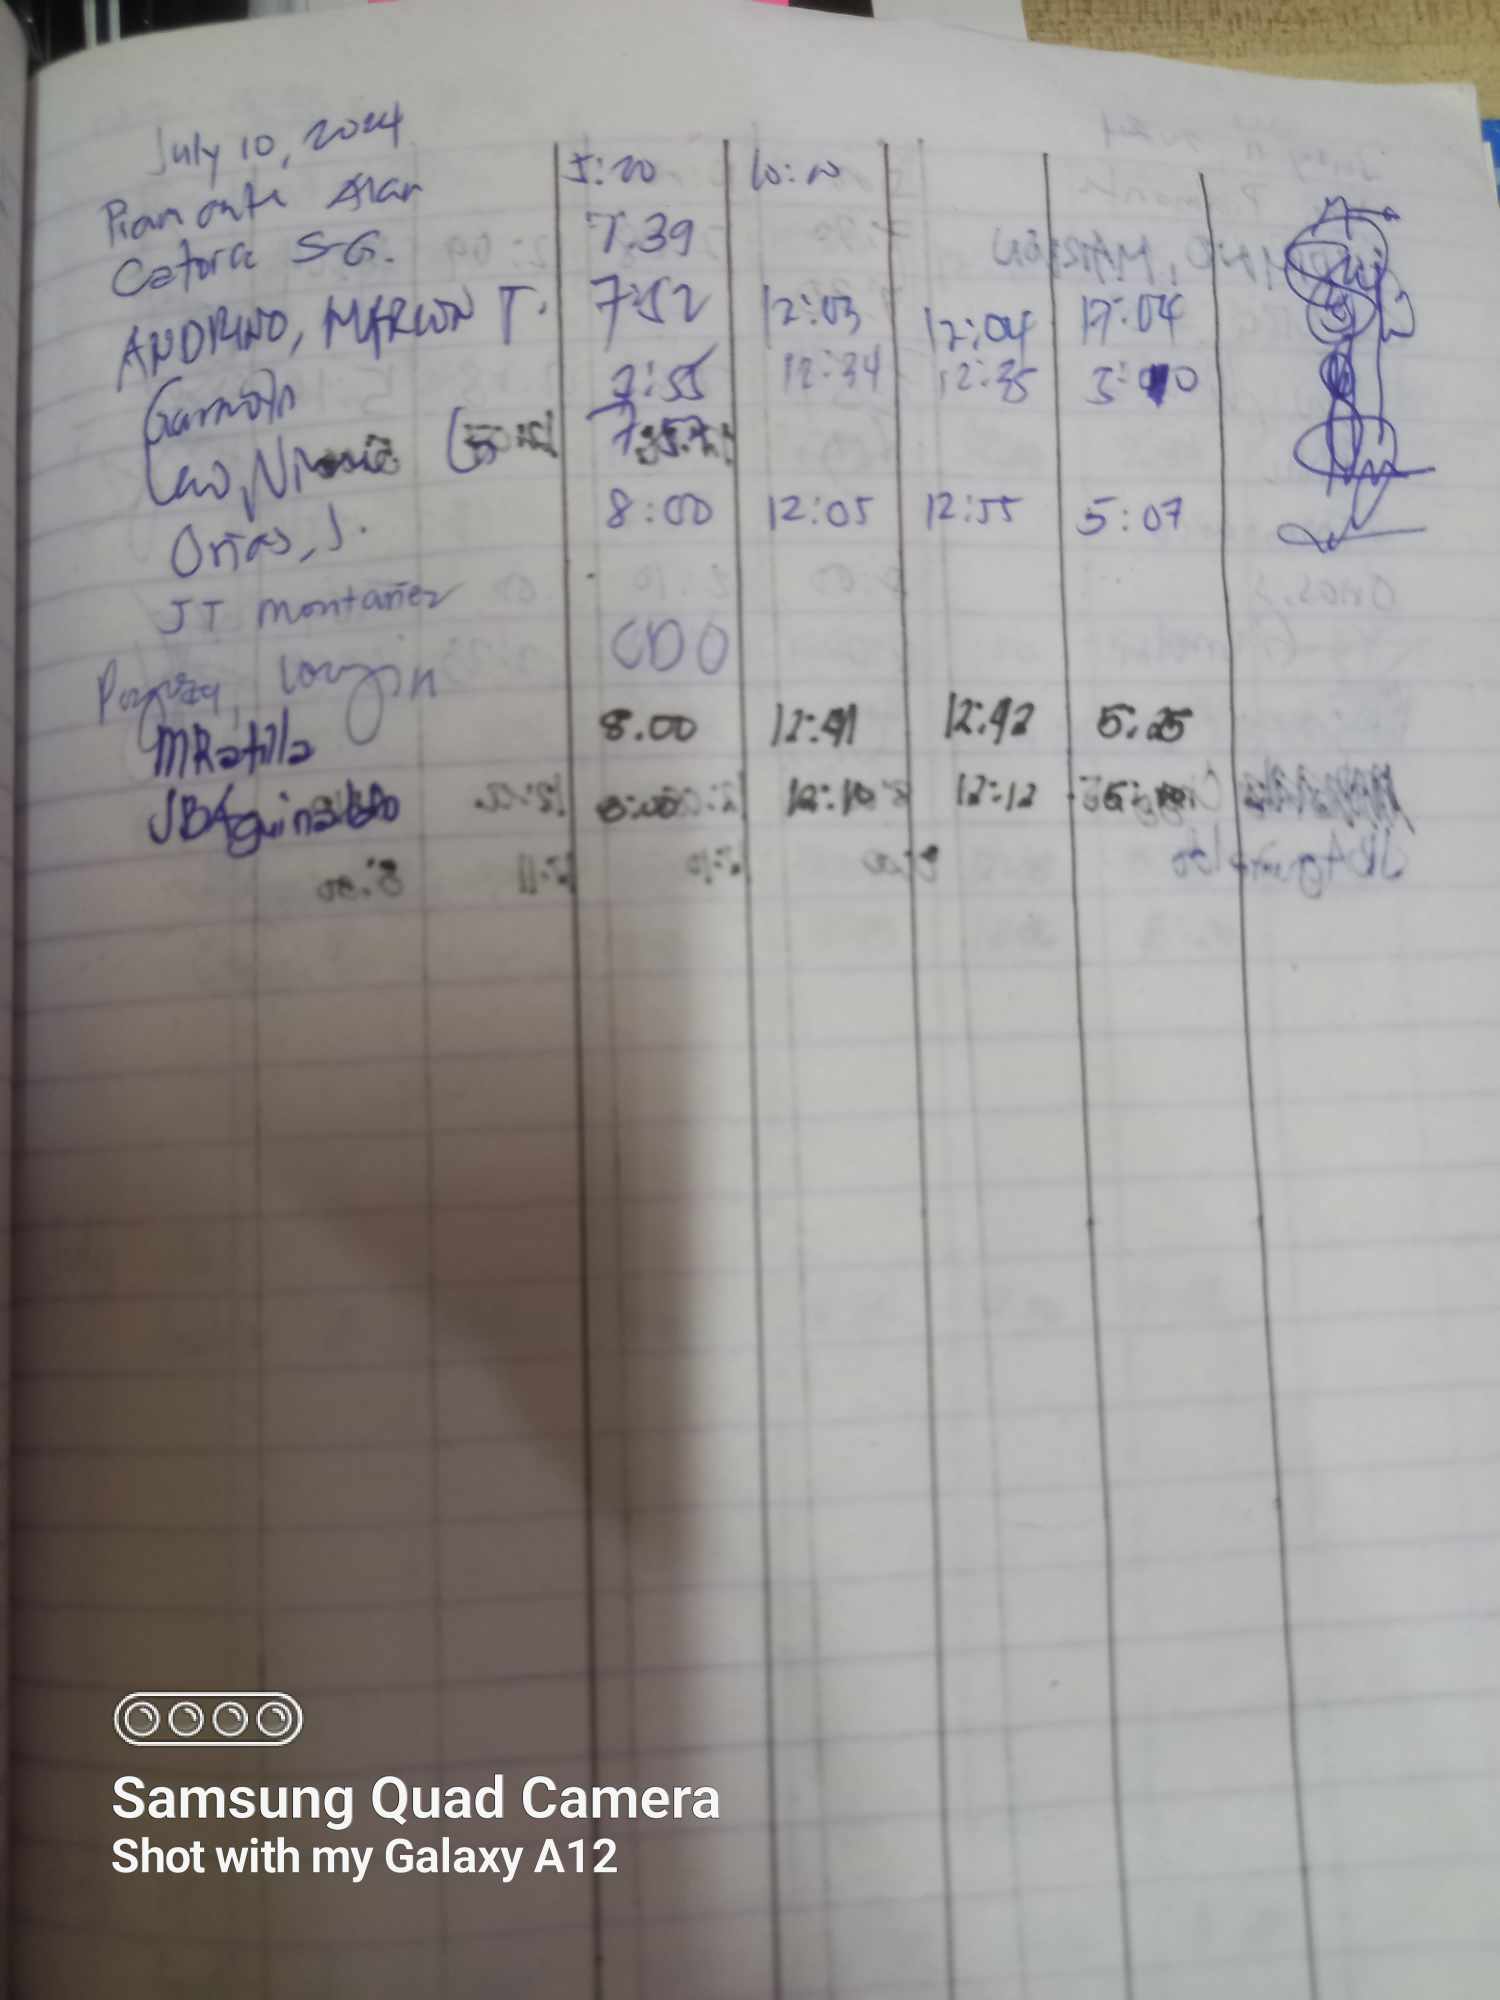 July 10, 2024
Piamonte Alan 5:20 10:20
Catora S-G. 7:39
ANDRINO, MARLON T. 7:52 12:03 12:04 17:04
Garmola 7:55 12:34 12:35
Lao, 7:57
Orias, J. 8:00 12:05 12:55 5:07
JT Montañez
CDO
MRatilla 8.00 12:41 12:42 5:25
JBAguinaldo 8:00 12:10 12:12
Samsung Quad Camera
Shot with my Galaxy A12